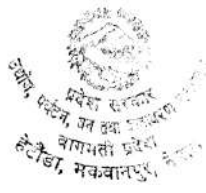 प्रदेश सरकार
उद्योग, पर्यटन, वन तथा वातावरण
बागमती प्रदेश
हेटौंडा, मकवानपुर, नेपाल